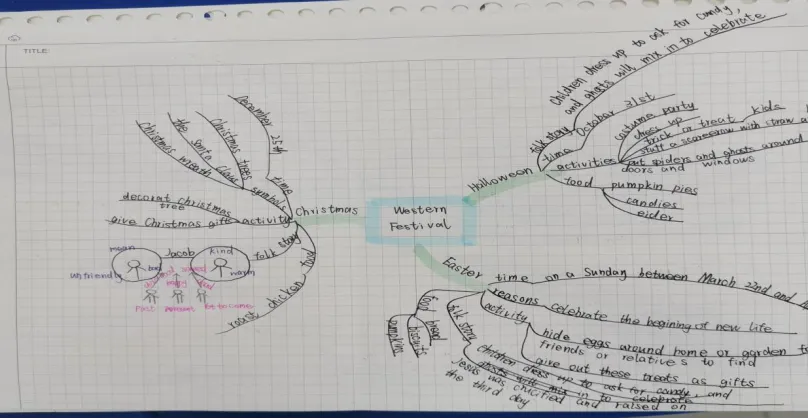 TITLE:
Western
Festival
Christmas
time
December 25th
symbols
Christmas trees
the santa claus
Christmas wreath
activity
decorat christmas
tree
give Christmas gift
folk story
Jacob
mean
unfriendly
kind
warm
food
roast chicken
Halloween
folk story
children dress up to ask for candy,
and ghosts will mix in to celebrate
time
October 31st
activities
costume party
dress up
trick or treat
kids
stuff a scarecrow with straw
put spiders and ghosts around
doors and windows
food
pumpkin pies
candies
eider
Easter
time
on a Sunday between March 22nd and
reasons
celebrate the begining of new life
activity
hide eggs around home or garden
friends or relatives to find
give out these treats as gifts
folk story
children dress up to ask for candy, and
ghosts will mix in to celebrate
Jesus was crucified and raised on
the third day
food
bread
biscuits
pumpkins